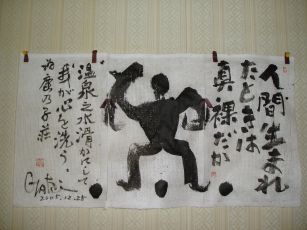 人間生まれ
たときは
真裸だが
温泉之水滑かにして
我が心を洗う
為鹿乃子荘
2005.12.25